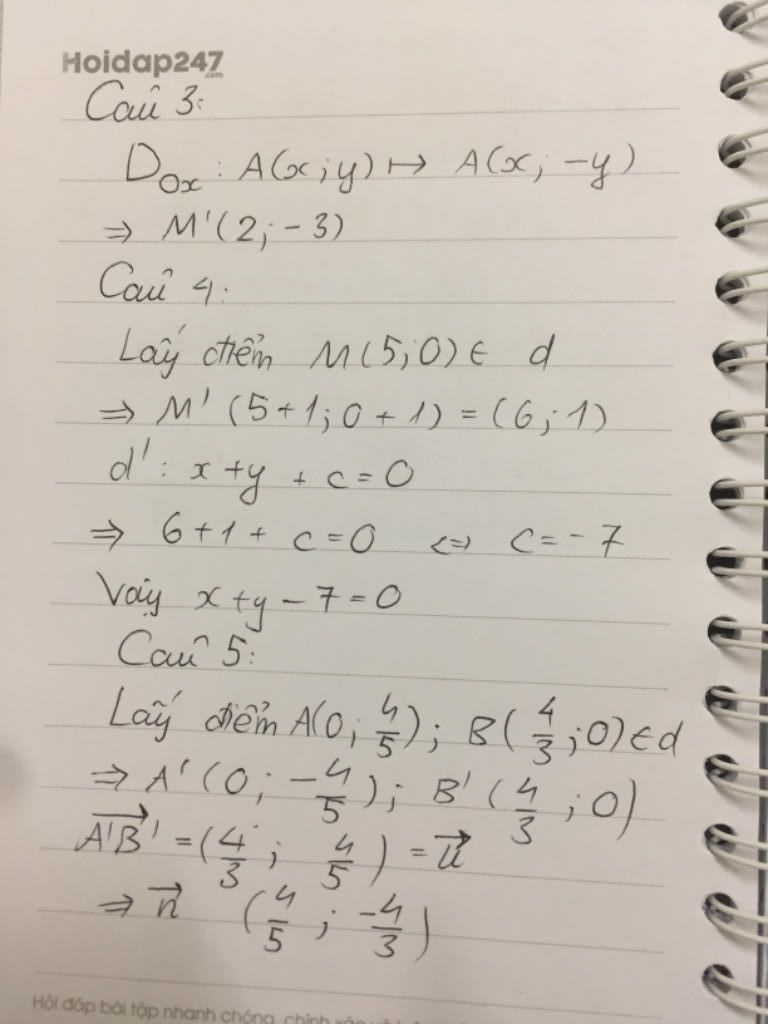 Hoidap247
.com
Câu 3:
Đox : A(x;y) ↦ A(x; -y)
⇒ M'(2; -3)
Câu 4:
Lấy điểm M(5;0) ∈ d
⇒ M' (5+1; 0+1) = (6; 1)
d' : x + y + c = 0
⇒ 6+1 + c = 0 ⇔ c = -7
Vậy x + y - 7 = 0
Câu 5:
Lấy điểm A(0; 4/5); B(4/3; 0) ∈ d
⇒ A'(0; -4/5); B'(4/3; 0)
A'B'→ = (4/3; 4/5) = u→
⇒ n→ (4/5; -4/3)
Hỏi đáp bài tập nhanh chóng, chính xác